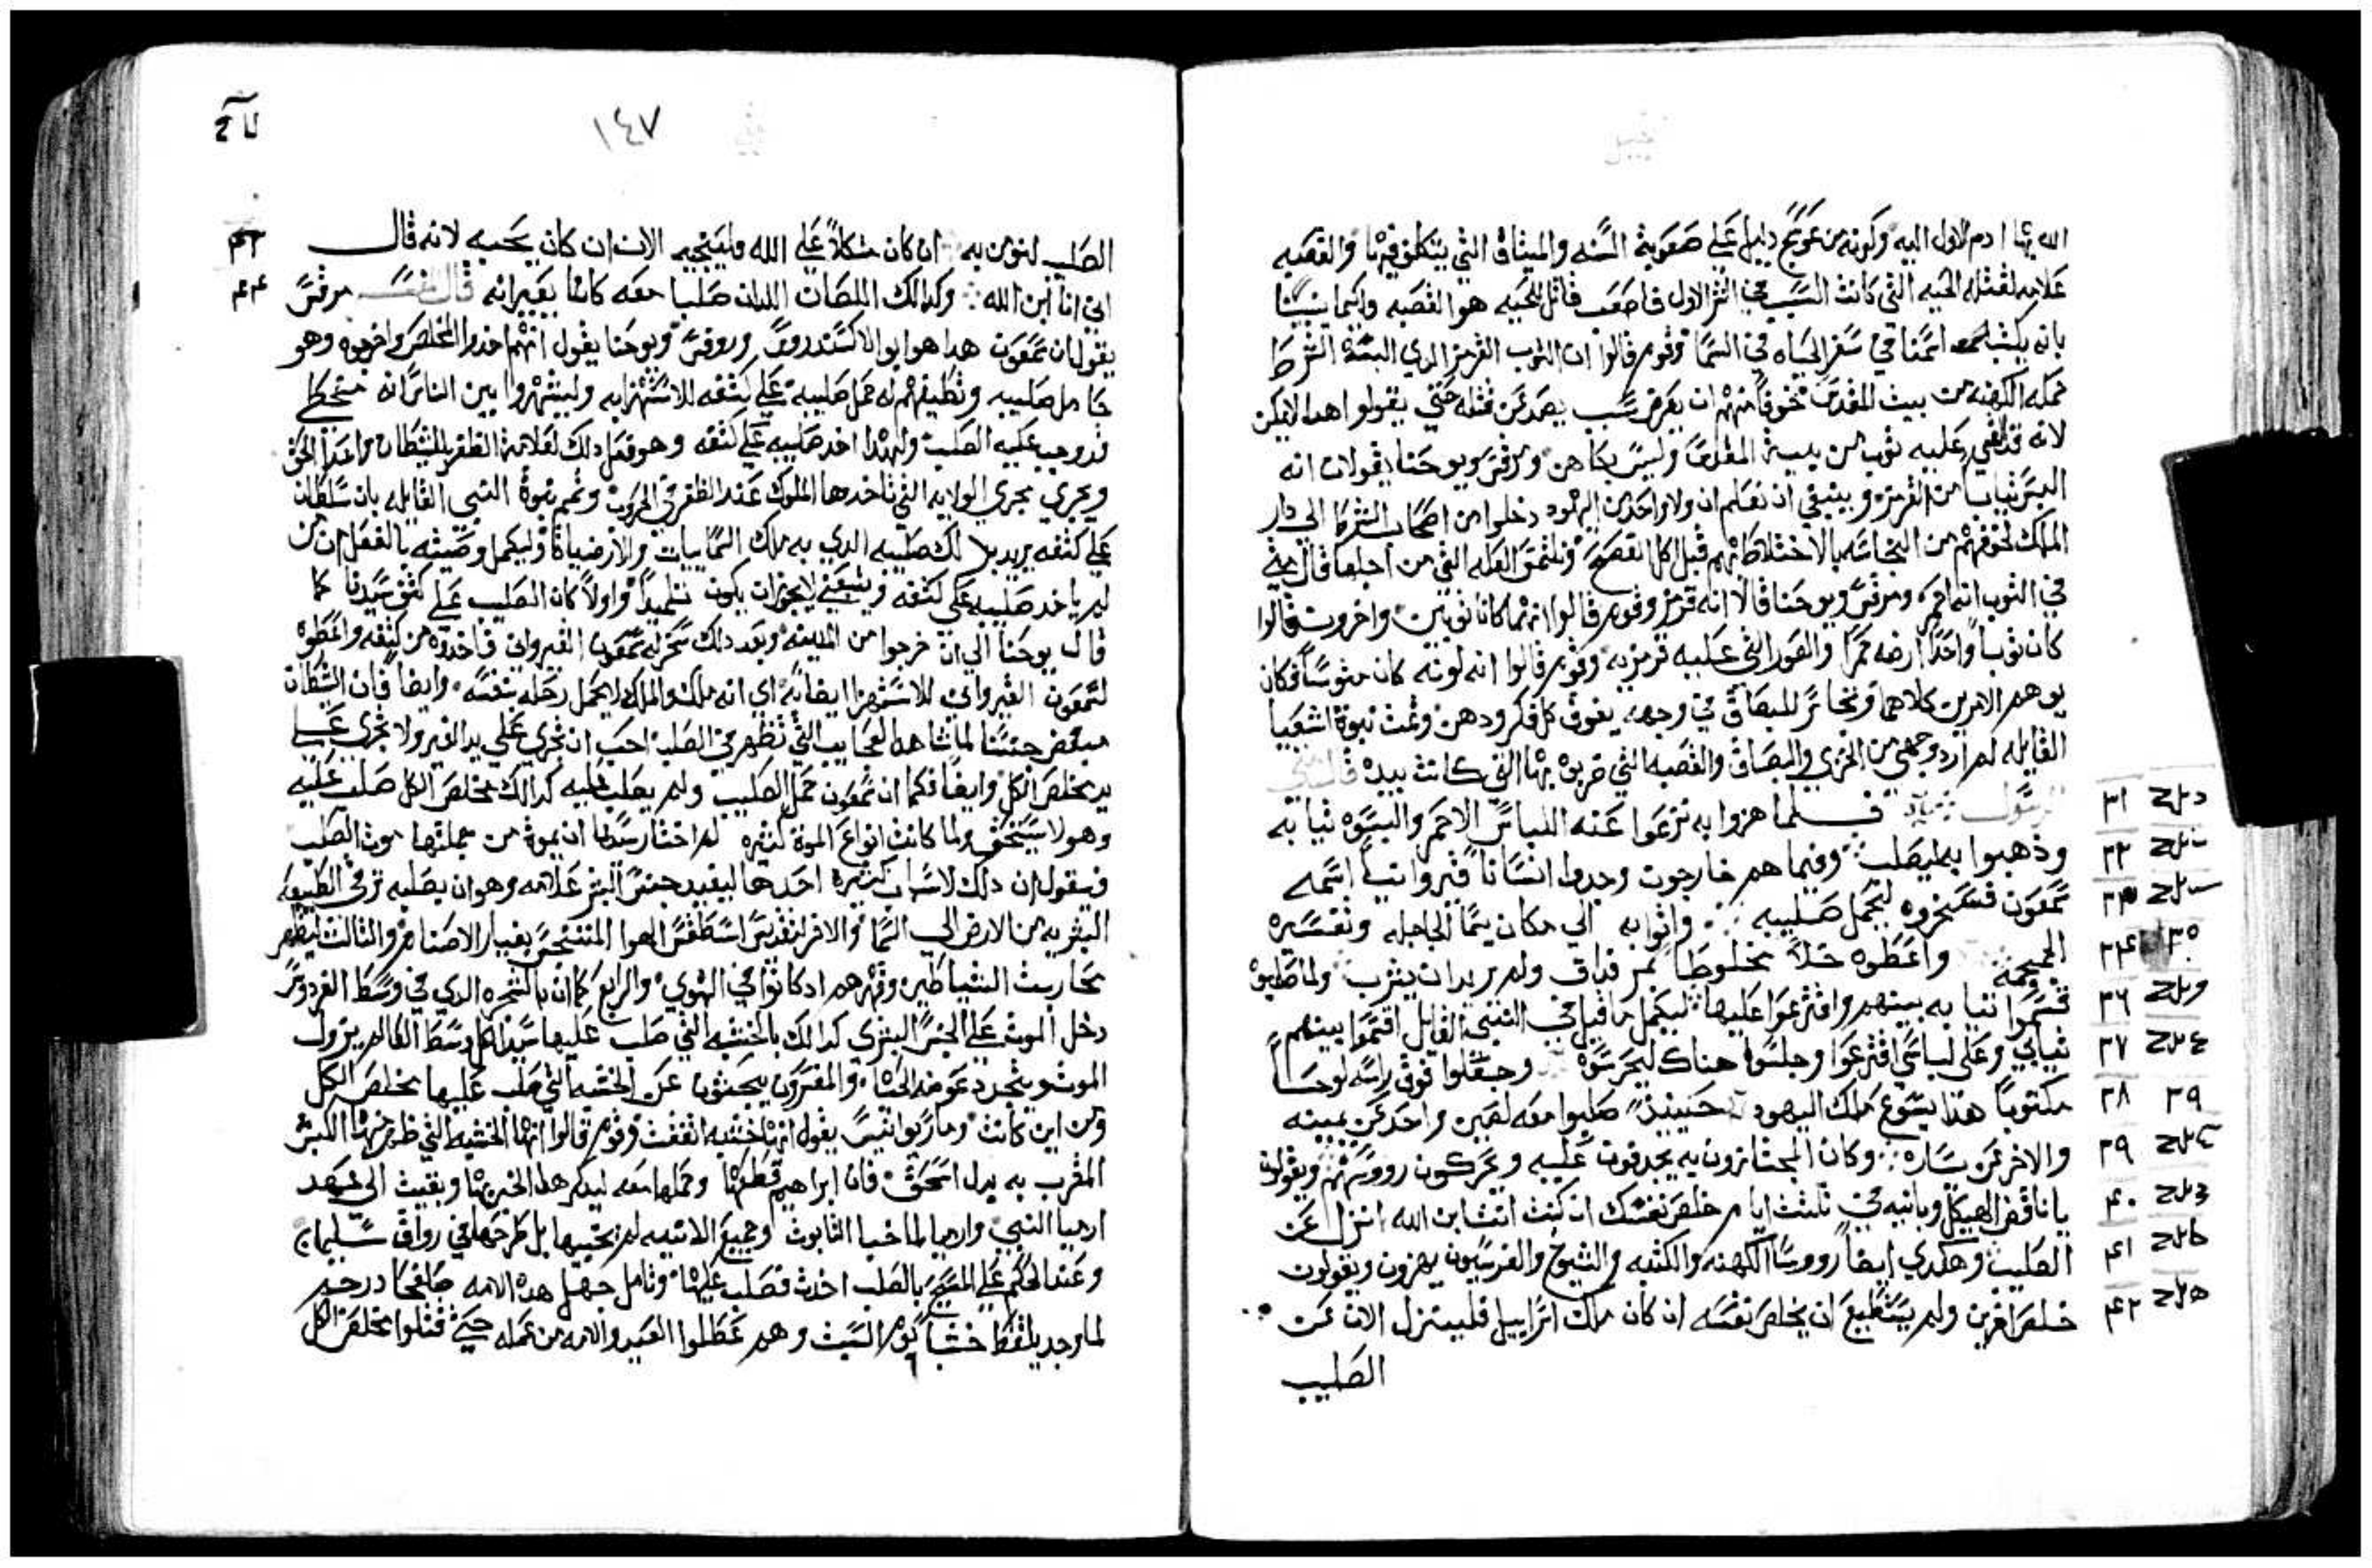 الصليب
١٤٧
الله بها ادم الاول اليه وكونه من عوسج دليل علي صعوبة السنه والميثاق التي يتكلمون فيها والقصبه
علامه لقتله الحيه التي كانت السبب في الاول فاصعب قاتل للحيه هو القصبه وكيما يتبينا
بانه يكتب اسمنا في سفر الحياه في السما وقوم قالوا ان الثوب القرمز الدي البسته الشرط
حمله الكهنه من بيت المقدس خوفا منهم ان يعرض سبب يصد عن قتله حتي يقولوا هدا لايمكن
لانه قد القي عليه ثوب من بيت المقدس وليس بكاهن ومرقس ويوحنا يقولان انه
البس ثيابا من القرمز وينبغي ان نعلم ان ولا واحد من اليهود دخلوا من اصحاب الشرط الي دار
الملك لخوفهم من النجاسه بالاختلاط بهم قبل اكل الفصح ونلتمس العله التي من اجلها قال متي
في الثوب انه احمر ومرقس ويوحنا قالا انه قرمز وقوم قالوا انهما كانا ثوبين واخرون قالوا
كان ثوبا واحدا ارضه حمرا والصور التي عليه قرمزيه وقوم قالوا انه لونه كان متوسطا فكان
يوهم الامرين كلاهما وتجاسر للبصاق في وجهه يفوق كل فكر ودهن وتمت نبوة اشعيا
القايله لم ارد وجهي من الخزي والبصاق والقصبه التي ضربوه بها التي كانت بيده قال متي
الرسول فلما هزوا به نزعوا عنه اللباس الاحمر والبسوه ثيابه ٣١
وذهبوا به ليصلب وفيما هم خارجون وجدوا انسانا قيروانيا اسمه ٣٢
سمعون فسخروه ليحمل صليبه واتوا به الي مكان يسما الجاجله وتفسيره ٣٣
الجمجمه واعطوه خلا مخلوطا بمر فداق ولم يريد ان يشرب ولما صلبوه ٣٤
قسموا ثيابه بينهم واقترعوا عليها ليكمل ما قيل في النبي القايل اقتسموا بينهم ٣٦
ثيابي وعلي لباسي اقترعوا وجلسوا هناك ليحرسوه وجعلوا فوق راسه لوحا ٣٧
مكتوبا هدا يسوع ملك اليهود حينيذ صلبوا معه لصين واحد عن يمينه ٣٨ ٣٩
والاخر عن يساره وكان المجتازون به يجدفون عليه ويحركون رووسهم ويقولون ٣٩
ياناقض الهيكل وبانيه في ثلثت ايام خلص نفسك ان كنت انت ابن الله انزل عن ٤٠
الصليب وهكدي ايضا رووسا الكهنه والكتبه والشيوخ والفرسيون يهزون ويقولون ٤١
خلص اخرين ولم يستطيع ان يخلص نفسه ان كان ملك اسراييل فلينزل الان عن ٤٢
الصليب
الصليب لنومن به ان كان متكلا علي الله فلينجيه الان ان كان يحبه لانه قال
اني انا ابن الله وكدالك اللصان اللدان صلبا معه كانا يعيرانه قال المفسر مرقس ٤٤
يقول ان سمعون هدا هو ابو الاكسندروس وروفس ويوحنا يقول انهم اخدوا المخلص واخرجوه وهو
حامل صليبه وتكليفهم له حمل صليبه علي كتفه للاستهزا به وليشهروا بين الناس انه
قد وجب عليه الصلب ولهدا اخد صليبه علي كتفه وهو فعل دلك لعلامة الظفر بالشيطان واعدا الحق
ويجري مجري الولايه التي تاخدها الملوك عند الظفر في الحروب وتتم نبوة النبي القايله بان سلطانه
علي كتفه يريد بدلك صليبه الدي به ملك السماييات والارضيات وليكمل وصيته بالفعل ان من
لم ياخد صليبه علي كتفه ويتبعني لايجوز ان يكون تلميدا واولا كان الصليب علي كتف سيدنا كما
قال يوحنا الي ان خرجوا من المدينه وبعد دلك سخر له سمعون القيرواني فاخدوه من كتفه واعطوه
لسمعون القيرواني للاستهزا ايضا به اي انه ملك والملك لايحمل رحله بنفسه وايضا فان الشيطان
مبغض جنسنا لما شاهد العجايب التي تظهر في الصلب احب ان تجري علي يد الغير ولا تجري علي
يد مخلص الكل وايضا فكما ان سمعون حمل الصليب ولم يصلب عليه كدالك مخلص الكل صلب عليه
وهو لا يستحق ولما كانت انواع الموت كثيره لم اختار سيدنا ان يموت من جملتها موت الصلب
فنقول ان دلك لاسباب كثيره احدها ليفيد جنس البشر علامه وهو ان بصلبه ترقي الطبيعه
البشريه من الارض الي السما والاخر لتقديس اسطقس الهوا المتنجس بغبار الاصنام والثالث ليظهر
محاربة الشياطين وقهرهم اد كانوا في الهوي والرابع كما ان بالشجره الدي في وسط الفردوس
دخل الموت علي الجنس البشري كدالك بالخشبه التي صلب عليها سيد الكل وسط العالم يزول
الموت ويتجدد عوضه الحياه والمفسرون يبحثون عن الخشبه التي صلب عليها مخلص الكل
ومن اين كانت ومار يوانيس يقول انها خشبه اتفقت وقوم قالوا انها الخشبه التي ظهر منها الكبش
المقرب به بدل اسحق فان ابراهيم قطعها وحملها معه ليدكر هدا الخير بها وبقيت الي عهد
ارميا النبي وارميا لما خبا التابوت وجميع الانيه لم يخبيها بل طرحها في رواق سليمان
وعند الحكم علي المسيح بالصلب اخدت فصلب عليها وتامل جهل هده الامه
لما وجد يلقط خشبا يوم السبت وهم عطلوا العيد والامه من عمله حتي قتلوا مخلص الكل